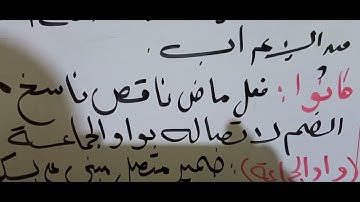 من الإعراب.
كانوا: فعل ماض ناقص ناسخ
الضم لاتصاله بواو الجماعة
(واو الجماعة): ضمير متصل مبني على